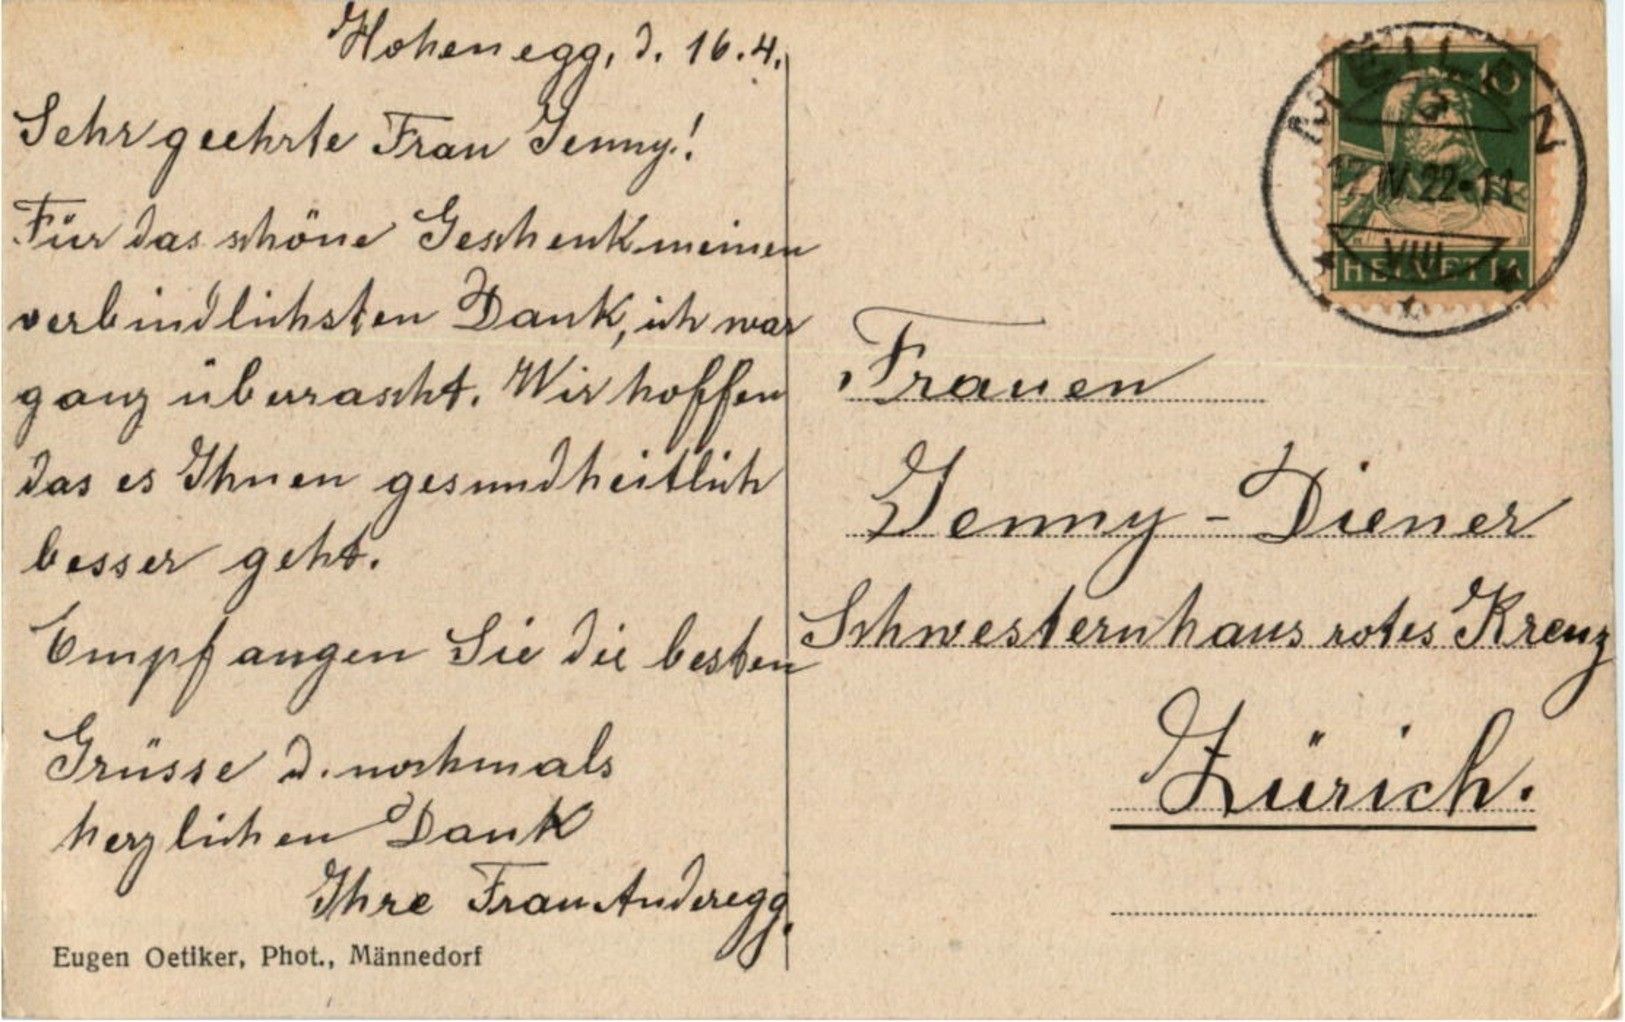 Hohenegg, d. 16.4.
Sehr geehrte Frau Jenny!
Für das schöne Geschenk meinen
verbindlichsten Dank, ich war
ganz überrascht. Wir hoffen
das es Ihnen gesundheitlich
besser geht.
Empfangen Sie die besten
Grüsse u. nochmals
herzlichen Dank
Ihre Frau Anderegg.
Eugen Oetiker, Phot., Männedorf
MEILEN
17.IV.22-11
VIII
10
HELVETIA
Frauen
Jenny-Diener
Schwesternhaus rotes Kreuz
Zürich.